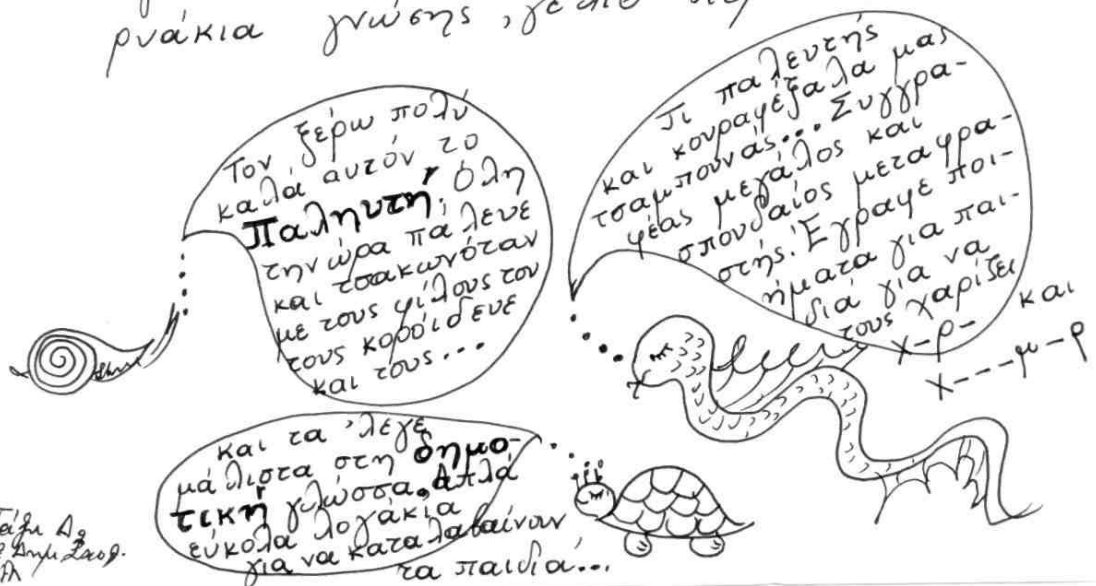 ρνάκια γνώσης, γε
Τον ξέρω πολύ
καλά αυτόν το
Παληυτή! όλη
την ώρα πάλευε
και τσακωνόταν
με τους φίλους του
τους κορόιδευε
και τους...
Τι παλευτής
και κουραφέξαλα μας
τσαμπουνάς... Συγγρα-
φέας μεγάλος και
σπουδαίος μεταφρα-
στής. Έγραψε ποι-
ήματα για παι-
διά για να
τους χαρίζει
χ-ρ- και
χ---μ-ρ
και τα 'λεγε
μάλιστα στη δημο-
τική γλώσσα. Απλά
εύκολα λογάκια
για να καταλαβαίνουν
τα παιδιά...